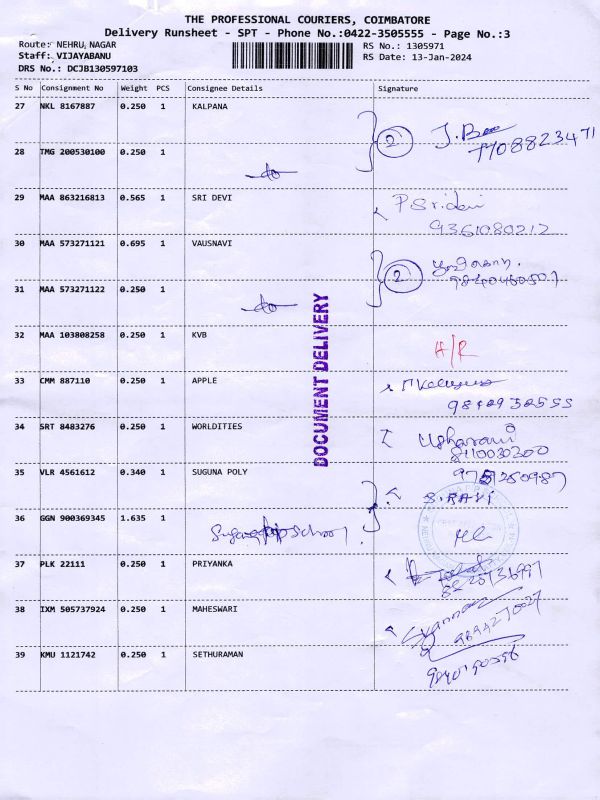 THE PROFESSIONAL COURIERS, COIMBATORE
Delivery Runsheet - SPT - Phone No.:0422-3505555 - Page No.:3
Route: NEHRU NAGAR RS No.: 1305971
Staff: VIJAYABANU RS Date: 13-Jan-2024
DRS No.: DCJB130597103
S No Consignment No Weight PCS Consignee Details Signature
27 NKL 8167887 0.250 1 KALPANA
2 7708823471
28 TMG 200530100 0.250 1
29 MAA 863216813 0.565 1 SRI DEVI P Sridevi
9361080212
30 MAA 573271121 0.695 1 VAUSNAVI
2
31 MAA 573271122 0.250 1
32 MAA 103808258 0.250 1 KVB H/R
33 CMM 887110 0.250 1 APPLE
34 SRT 8483276 0.250 1 WORLDITIES Usharani
8110030300
35 VLR 4561612 0.340 1 SUGUNA POLY
S.RAVI
36 GGN 900369345 1.635 1
37 PLK 22111 0.250 1 PRIYANKA
38 IXM 505737924 0.250 1 MAHESWARI
39 KMU 1121742 0.250 1 SETHURAMAN
DOCUMENT DELIVERY